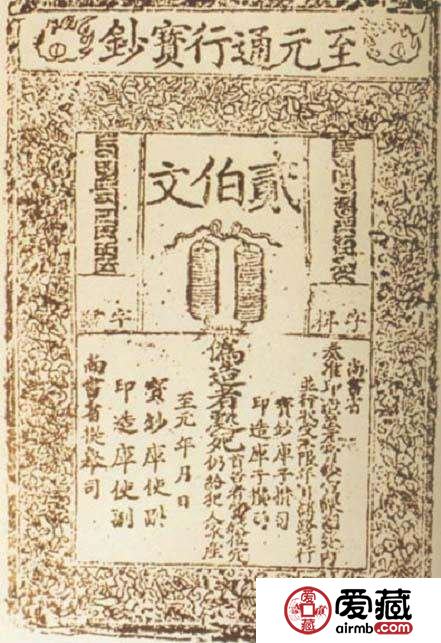 至元通行寶鈔
貳伯文
字料
字號
尚書省
奏准印造至元寶鈔宣課差役內
並行收受不限年月諸路通行
寶鈔庫子攢司
印造庫子攢司
偽造者處死
首告者賞銀
仍給犯人家產
至元年月日
寶鈔庫使副
印造庫使副
尚書省提舉司
爱藏
airmb.com